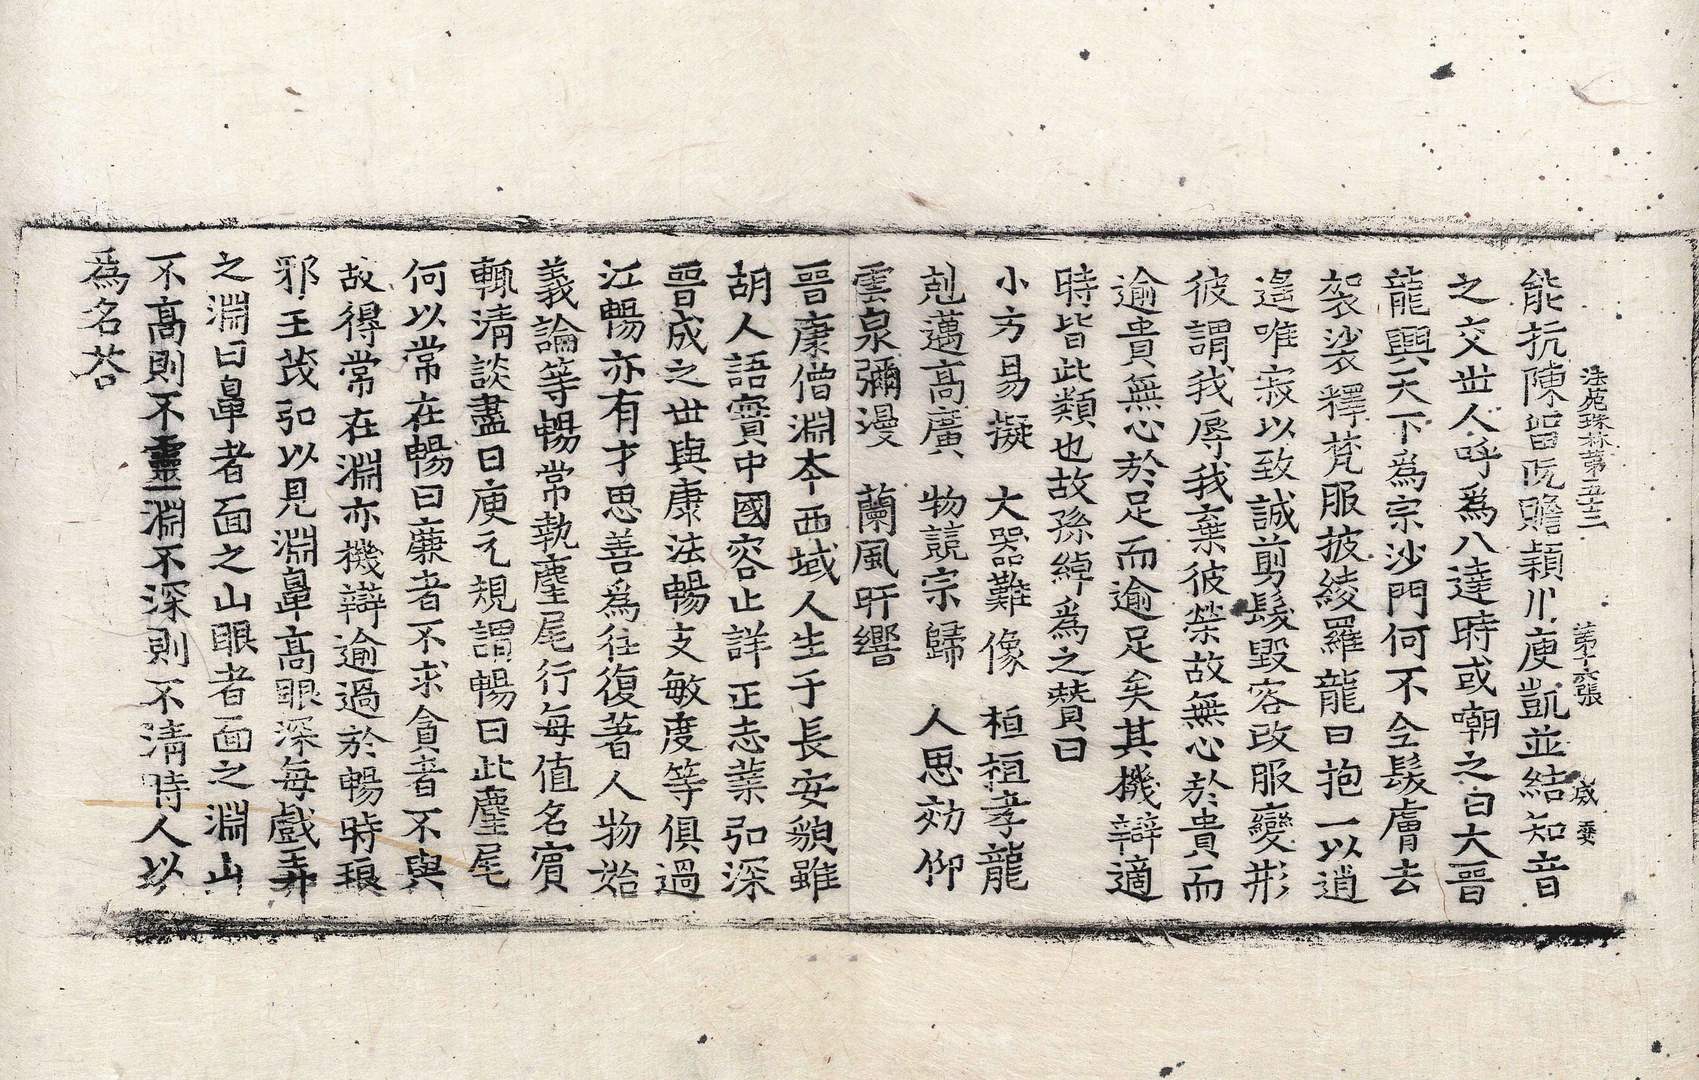 法苑珠林第五十三　第十六張　感　雯
能抗陳留阮瞻頴川庾凱並結知音
之交世人呼爲八達時或嘲之曰大晉
龍興天下爲宗沙門何不全髮膚去
袈裟釋梵服披綾羅龍曰抱一以逍
遥唯寂以致誠剪髮毁容改服變形
彼謂我辱我棄彼榮故無心於貴而
逾貴無心於足而逾足矣其機辯適
時皆此類也故孫綽爲之贊曰
小方易擬　大器難像　桓桓孝龍
剋邁高廣　物競宗歸　人思効仰
雲泉彌漫　蘭風肸響
晉康僧淵本西域人生于長安貌雖
胡人語實中國容止詳正志業弘深
晉成之世與康法暢支敏度等俱過
江暢亦有才思善爲往復著人物始
義論等暢常執麈尾行每值名賔
輒清談盡日庾元規謂暢曰此麈尾
何以常在暢曰廉者不求貪者不與
故得常在淵亦機辯逾過於暢時琅
邪王茂弘以見淵鼻高眼深每戲弄
之淵曰鼻者面之山眼者面之淵山
不高則不靈淵不深則不清時人以
爲名荅